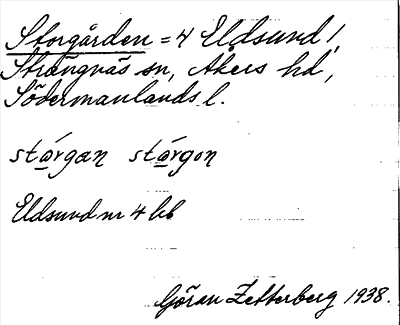 Storgården = 4 Eldsund 1,
Strängnäs sn, Åkers hd,
Södermanlands l.
stárgan stárgon
Eldsund nr 4 kb
Göran Zetterberg 1938.